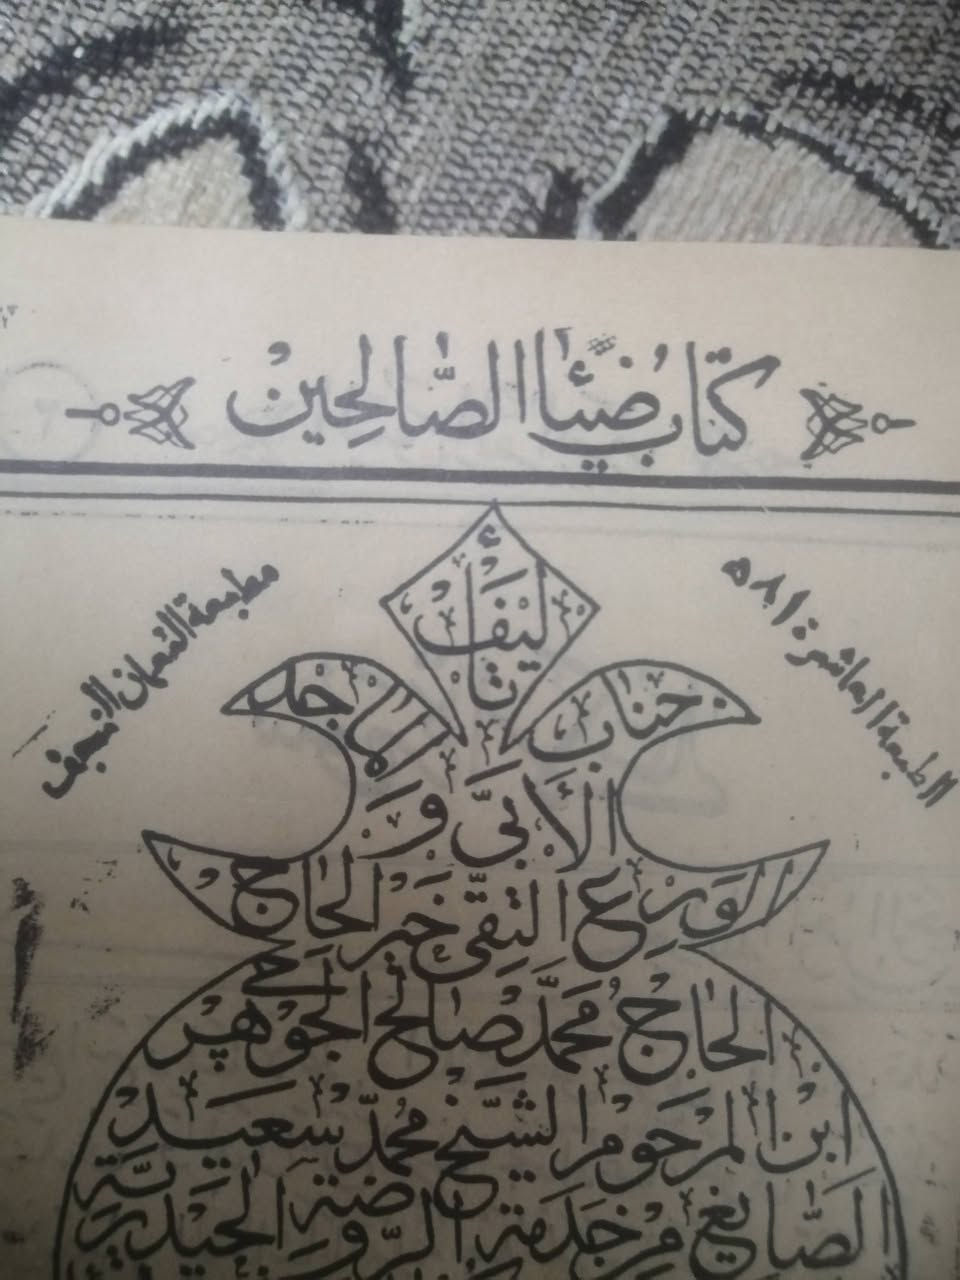 كتاب ضياء الصالحين
الطبعة العاشرة
مطبعة النعمان النجف
تأليف
جناب الماجد
الأبي و
الورع التقي خير الحاج
الحاج محمد صالح الجوهرجي
ابن المرحوم الشيخ محمد سعيد
الصايغ من خدمة الروضة الحيدرية